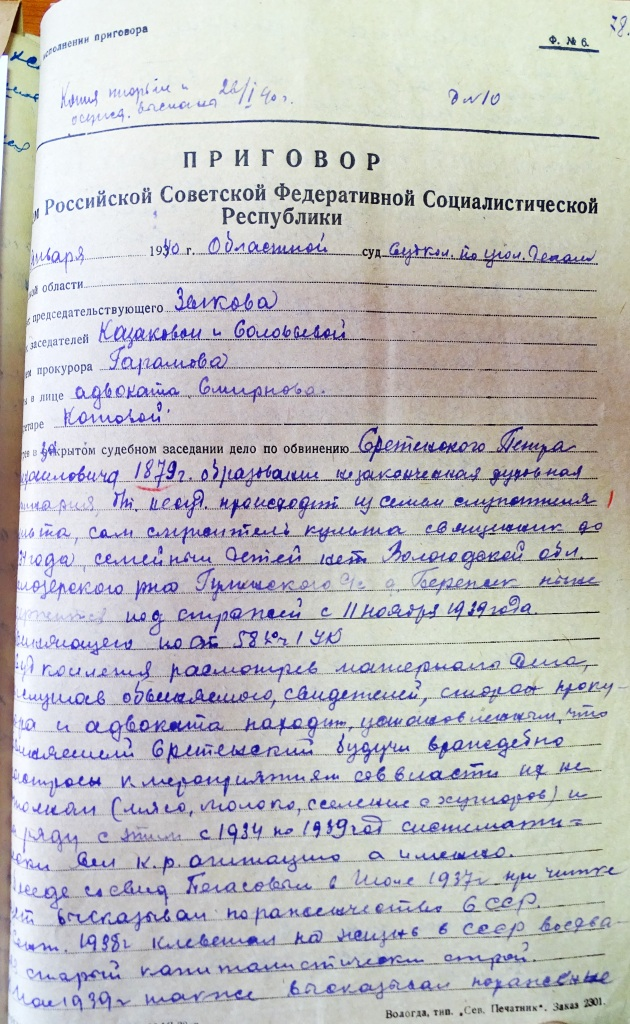 исполнении приговора
Ф. № 6.
78.
Копия 26/I 40 г.
выслана
ПРИГОВОР
Российской Советской Федеративной Социалистической
Республики
января 1940 г. Областной суд Судкол. по угол. делам
кой области
председательствующего Зыкова
заседателей Казаковой и Соловьевой
прокурора Гарамова
в лице адвоката Смирнова.
етаре Котовой
в закрытом судебном заседании дело по обвинению Сретенского Петра
хайловича 1879 г. образование незаконченная духовная
происходит из семьи служителя
льта, сам служитель культа священник до
года, семейный детей нет Вологодской обл.
лозерского р-на с/с д. ныне
под стражей с 11 ноября 1939 года.
58 10 ч 1 УК
Судколлегия расмотрев материалы дела,
обвиняемого, свидетелей, сторон проку-
ра и адвоката находит, установленным, что
Сретенский будучи враждебно
к мероприятиям соввласти их не
(мясо, молоко, сселение с хуторов) и
ряду с этим с 1934 по 1939 год системати=
ски вел к.р. агитацию а именно.
беседе со свид Пегасовым в Июле 1937 г при читке
высказывал пораженчество СССР.
1938 г клеветал на жизнь в СССР восхва-
старый капиталистически строй.
1939 г также высказывал поражение
Вологда, тип. „Сев. Печатник“. Заказ 2301.